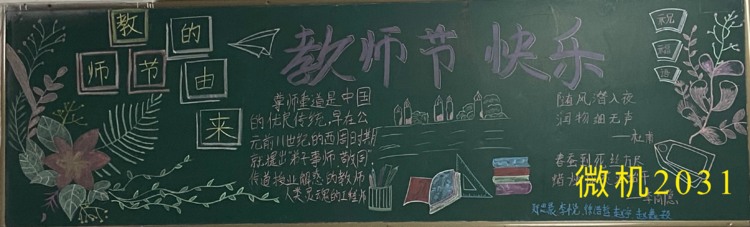 教师节的由来
教师节 快乐
祝福语
尊师重道是中国
的优良传统,早在公
元前11世纪的西周时期
就提出弟子事师,敬同
传道授业解惑的教师
人类灵魂的工程师
随风潜入夜
润物细无声
——杜甫
春蚕到死丝方尽
李商隐
微机2031